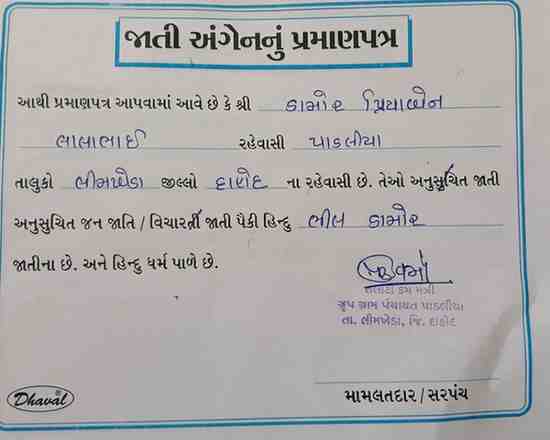 જાતી અંગેનનું પ્રમાણપત્ર
આથી પ્રમાણપત્ર આપવામાં આવે છે કે શ્રી ડામોર પ્રિયાબેન
લાલાભાઈ રહેવાસી પાડલીયા
તાલુકો લીમખેડા જીલ્લો દાહોદ ના રહેવાસી છે. તેઓ અનુસુચિત જાતી
અનુસુચિત જન જાતિ / વિચારતી જાતી પૈકી હિન્દુ ભીલ ડામોર
જાતીના છે. અને હિન્દુ ધર્મ પાળે છે.
તલાટી કમ મંત્રી
ગ્રુપ ગ્રામ પંચાયત પાડલીયા
તા. લીમખેડા, જિ. દાહોદ
Dhaval ®
મામલતદાર / સરપંચ